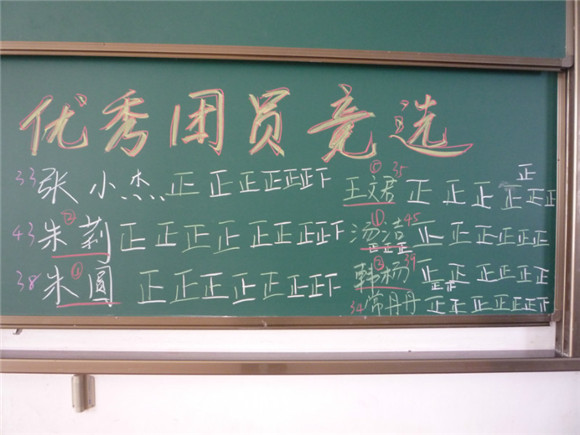 优秀团员竞选
33 张小杰 正正正正正正下
⑤ 35 王文君 正正正正正正正
43 ② 朱莉 正正正正正正正正下
① 45 汤洁 正正正正正正正正正
38 朱圆 正正正正正正正下
③ 39 韩杨 正正正正正正正
34 常丹丹 正正正正正正